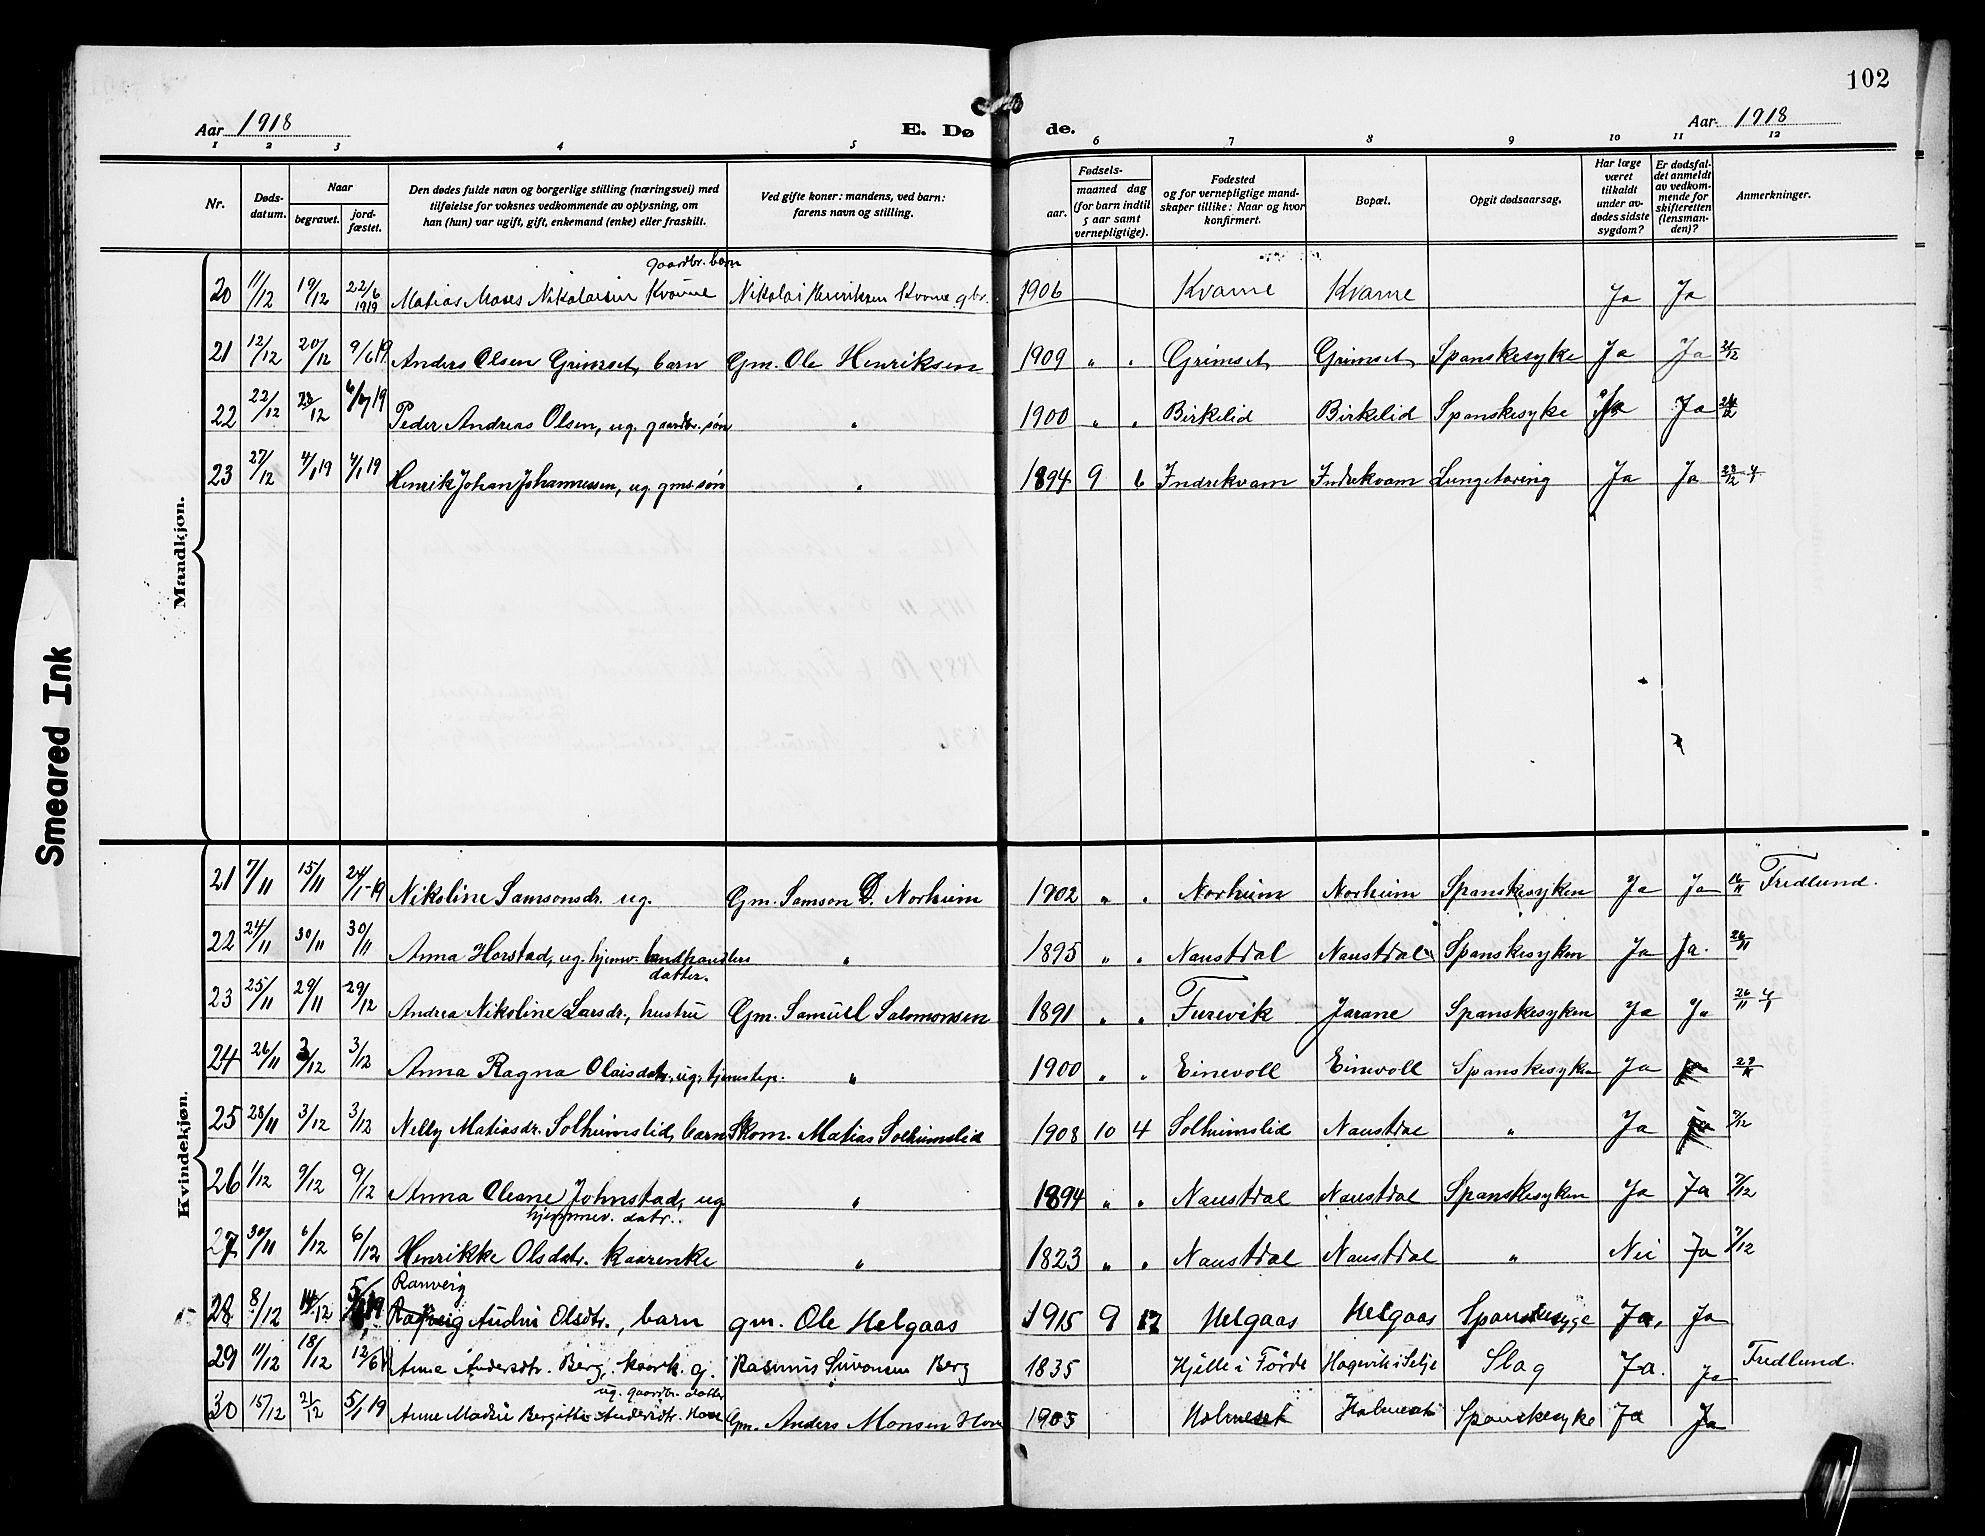 102
Aar 1918
E. Dø
de.
Aar 1918
1 2 3 4 5 6 7 8 9 10 11 12
Nr.
Døds-
datum.
Naar
begravet.
jord-
fæstet.
Den dødes fulde navn og borgerlige stilling (næringsvei) med
tilføielse for voksnes vedkommende av oplysning, om
han (hun) var ugift, gift, enkemand (enke) eller fraskilt.
Ved gifte koner: mandens, ved barn:
farens navn og stilling.
Fødsels-
aar.
maaned dag
(for barn indtil
5 aar samt
vernepligtige).
Fødested
og for vernepligtige mand-
skaper tillike: Naar og hvor
konfirmert.
Bopæl.
Opgit dødsaarsag.
Har læge
været
tilkaldt
under av-
dødes sidste
sygdom?
Er dødsfal-
det anmeldt
av vedkom-
mende for
skifteretten
(lensman-
den)?
Anmerkninger.
Smeared Ink
Mandkjøn.
gaardbr. barn
20 11/12 19/12 22/6 1919 Matias Moses Nikolaisen Kvame Nikolai Henriksen Kvame gbr. 1906 Kvame Kvame Ja Ja
21 12/12 20/12 9/6 19 Anders Olsen Grimset, barn Gm. Ole Henriksen 1909 " " Grimset Grimset Spanskesyke Ja Ja
22 22/12 28/12 19 Peder Andreas Olsen, ug. gaardbr. søn " 1900 " " Birkelid Birkelid Spanskesyke Ja Ja
23 27/12 4/1 19 4/1 19 Henrik Johan Johannessen, ug. gms. søn " 1894 9 6 Indrekvam Indrekvam Lungetæring Ja Ja 28/12 4/1
Kvindekjøn.
21 7/11 15/11 24/5 19 Nikoline Samsonsdr. ug. Gm. Samson D. Norheim 1902 " " Norheim Norheim Spanskesyken Ja Ja 16/11 Fredlund.
22 24/11 30/11 30/11 Anna Horstad, ug. hjemv. landhandlers " 1895 " " Naustdal Naustdal Spanskesyken Ja Ja. 26/11
datter.
23 25/11 29/11 29/12 Andrea Nikoline Larsdr., hustru Gm. Samuel Salomonsen 1891 " " Furevik Jarane Spanskesyken Ja Ja 26/11 4/1
24 26/11 3/12 3/12 Anna Ragna Olaisdatr., ug. tjenestep. " 1900 " " Einevoll Einevoll Spanskesyken Ja
25 28/11 3/12 3/12 Nelly Matiasdr. Solheimslid, barn Skom. Matias Solheimslid 1908 10 4 Solheimslid Naustdal " Ja Ja
26 1/12 9/12 9/12 Anna Oleane Johnstad, ug " 1894 " " Naustdal Naustdal Spanskesyken Ja Ja
hjemmev. datr..
27 30/11 6/12 6/12 Henrikke Olsdatr. kaarenke " 1823 " " Naustdal Naustdal " Nei Ja
Ranveig
28 8/12 14/12 19 Audni Olsdtr., barn gm. Ole Helgaas 1915 9 17 Helgaas Helgaas Spanskesyge Ja, Ja
29 11/12 18/12 12/6 Anne Andersdtr. Berg, kaark. g. Rasmus Simonsen Berg 1835 Hjelle i Førde Hagevik i Selje Slag Ja. Ja Fredlund.
ug. gaardbr. datter
30 15/12 21/12 5/1 19 Anne Madie Bergitte Andersdtr. Gm. Anders Monsen 1905 Holmeset Holmeset Spanskesyke Ja Ja